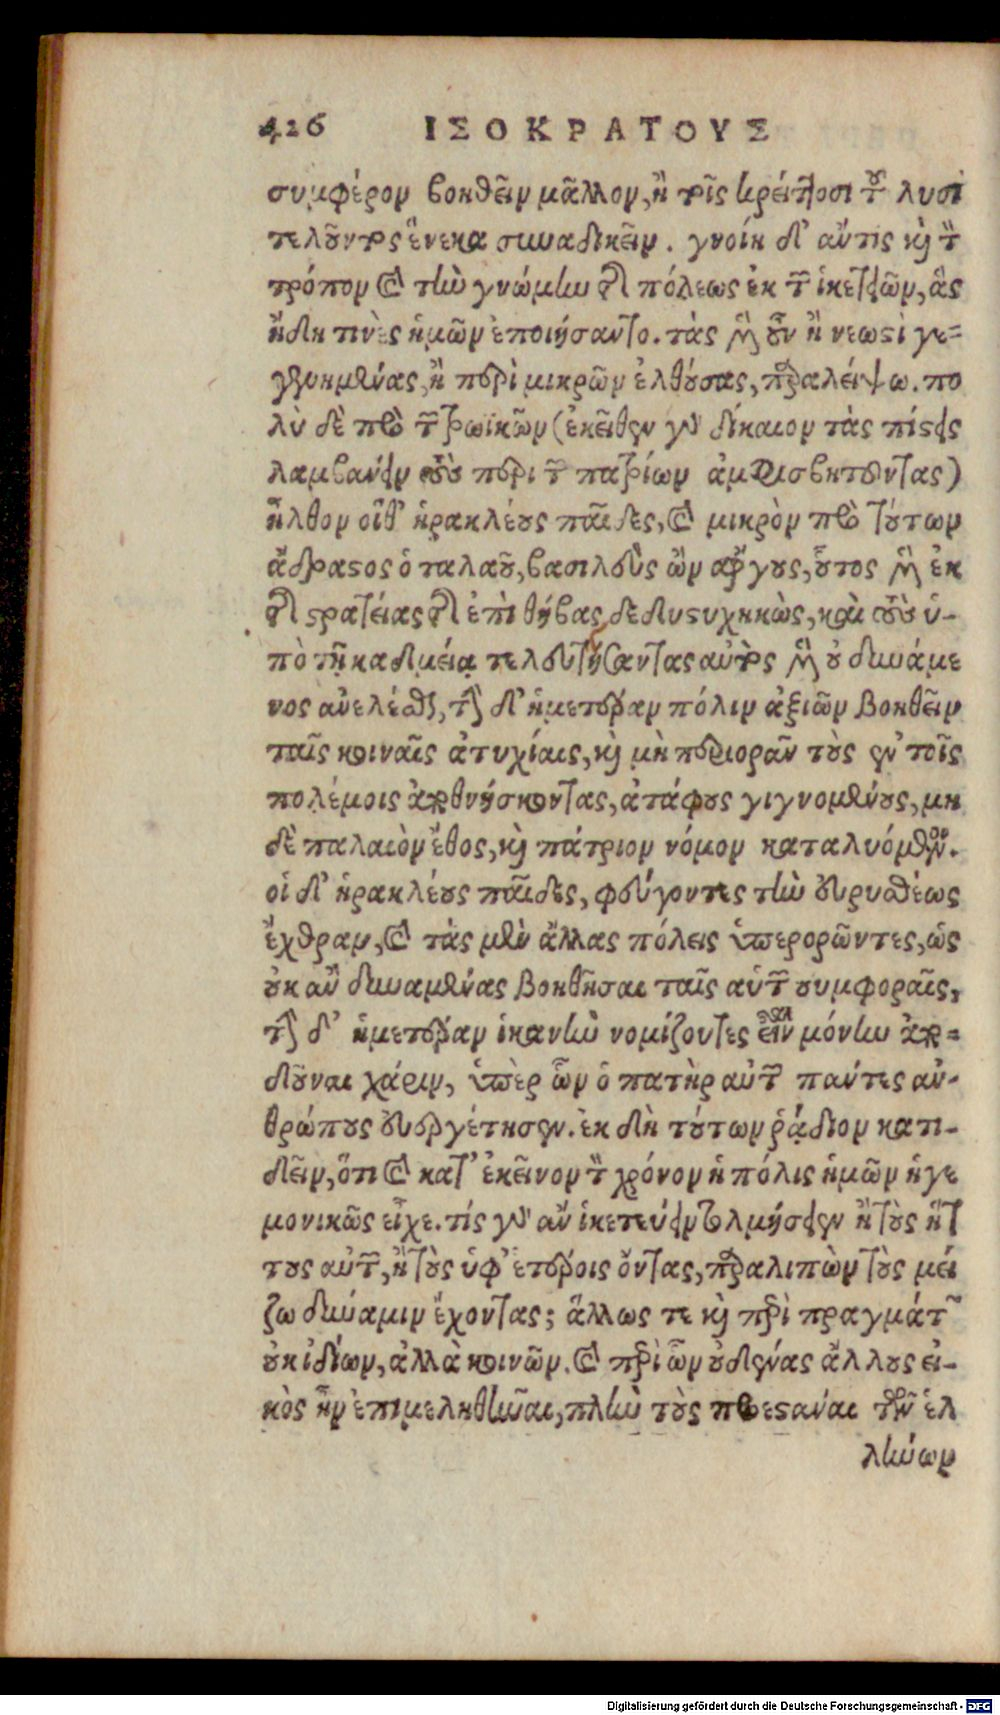 426 ΙΣΟΚΡΑΤΟΥΣ
συμφέρον βοηθεῖν μᾶλλον, ἢ τοῖς κρείττοσι τοῦ λυσι
τελοῦντος ἕνεκα συναδικεῖν. γνοίη δ' ἄν τις καὶ τὸν
τρόπον καὶ τὴν γνώμην τῆς πόλεως ἐκ τῶν ἱκετειῶν, ἃς
ἤδη τινὲς ἡμῶν ἐποιήσαντο. τὰς μὲν οὖν ἢ νεωστὶ γε-
γενημένας, ἢ περὶ μικρῶν ἐλθούσας, παραλείψω. πο
λὺ δὲ πρὸ τῶν τρωϊκῶν (ἐκεῖθεν γὰρ δίκαιον τὰς πίστεις
λαμβάνειν τοὺς περὶ τῶν πατρίων ἀμφισβητοῦντας)
ἦλθον οἵθ' ἡρακλέους παῖδες, καὶ μικρὸν πρὸ τούτων
ἄδραστος ὁ ταλαοῦ, βασιλεὺς ὢν ἄργους, οὗτος μὲν ἐκ
τῆς στρατείας τῆς ἐπὶ θήβας δεδυστυχηκὼς, καὶ τοὺς ὑ-
πὸ τῇ καδμείᾳ τελευτήσαντας αὐτὸς μὲν οὐ δυνάμε
νος ἀνελέσθαι, τὴν δ' ἡμετέραν πόλιν ἀξιῶν βοηθεῖν
ταῖς κοιναῖς ἀτυχίαις, καὶ μὴ περιορᾶν τοὺς ἐν τοῖς
πολέμοις ἀποθνήσκοντας, ἀτάφους γιγνομένους, μη
δὲ παλαιὸν ἔθος, καὶ πάτριον νόμον καταλυόμενον.
οἱ δ' ἡρακλέους παῖδες, φεύγοντες τὴν εὐρυσθέως
ἔχθραν, καὶ τὰς μὲν ἄλλας πόλεις ὑπερορῶντες, ὡς
οὐκ ἂν δυναμένας βοηθῆσαι ταῖς αὑτῶν συμφοραῖς,
τὴν δ' ἡμετέραν ἱκανὴν νομίζοντες εἶναι μόνην ἀπο-
δοῦναι χάριν, ὑπὲρ ὧν ὁ πατὴρ αὐτῶν πάντας ἀν-
θρώπους εὐεργέτησεν. ἐκ δὴ τούτων ῥᾴδιον κατι-
δεῖν, ὅτι καὶ κατ' ἐκεῖνον τὸν χρόνον ἡ πόλις ἡμῶν ἡγε
μονικῶς εἶχε. τίς γὰρ ἂν ἱκετεύειν τολμήσειεν ἢ τοὺς ἥτ
τους αὐτοῦ, ἢ τοὺς ὑφ' ἑτέροις ὄντας, παραλιπὼν τοὺς μεί
ζω δύναμιν ἔχοντας; ἄλλως τε καὶ περὶ πραγμάτων
οὐκ ἰδίων, ἀλλὰ κοινῶν. καὶ περὶ ὧν οὐδένας ἄλλους εἰ-
κὸς ἦν ἐπιμεληθῆναι, πλὴν τοὺς προεστάναι τῶν ἑλ
λήνων
Digitalisierung gefördert durch die Deutsche Forschungsgemeinschaft - DFG